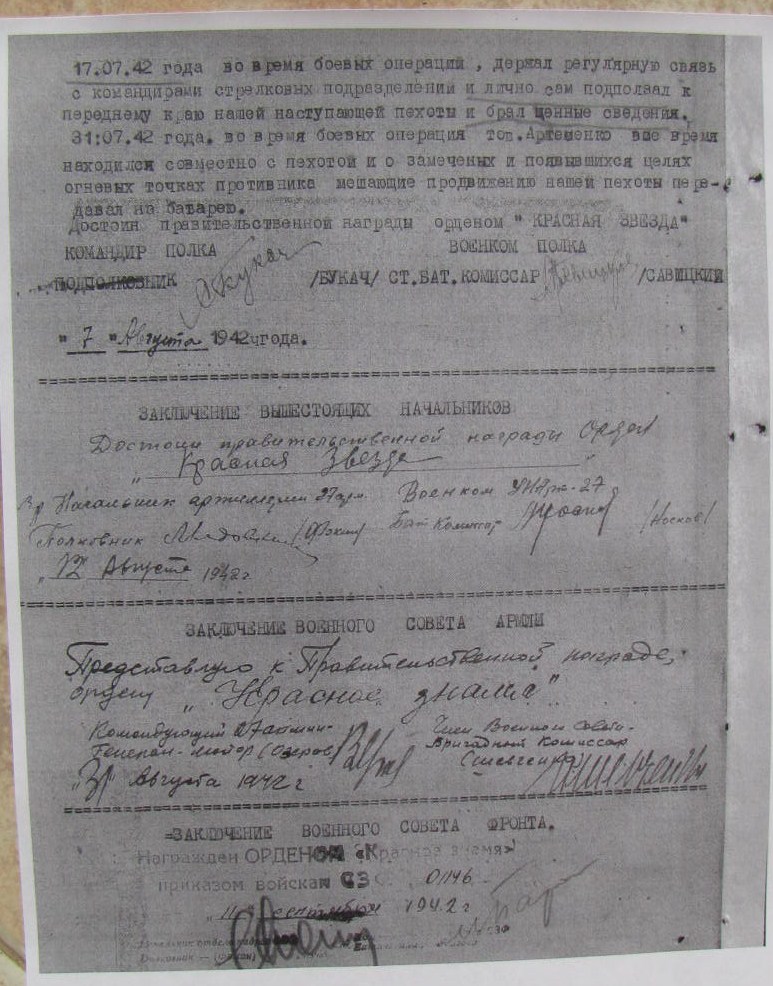 17.07.42 года во время боевых операций, держал регулярную связь
с командирами стрелковых подразделений и лично сам подползал к
переднему краю нашей наступающей пехоты и брал ценные сведения.
31:07.42 года. во время боевых операция тов.Артеменко все время
находился совместно с пехотой и о замеченых и появышихся целях
огневых точках противника мешающие продвижению нашей пехоты пере-
давал на батарею.
Достоин правительственной награды орденом " КРАСНАЯ ЗВЕЗДА"
КОМАНДИР ПОЛКА ВОЕНКОМ ПОЛКА
ПОДПОЛКОВНИК /БУКАЧ/ СТ.БАТ.КОМИССАР /САВИЦКИЙ
" 7 " Августа 1942 года.
ЗАКЛЮЧЕНИЕ ВЫШЕСТОЯЩИХ НАЧАЛЬНИКОВ
Достоин правительственной награды Орден
" Красная Звезда "
Начальник артиллерии 27арм. Военком УНАрт-27
Полковник Бат Комиссар /Носков/
"12 Августа 1942г
ЗАКЛЮЧЕНИЕ ВОЕННОГО СОВЕТА АРМИИ
Представляю к Правительственной награде,
ордену "Красное знамя"
Командующий 27 армии- Член Военного Совета-
Генерал-майор (Озеров) Бригадный Комиссар
(Шевченко)
"31" Августа 1942 г
=ЗАКЛЮЧЕНИЕ ВОЕННОГО СОВЕТА ФРОНТА.
Награжден ОРДЕНОМ «Красное знамя»
приказом войскам СЗФ 01146
"11" сентября 1942 г